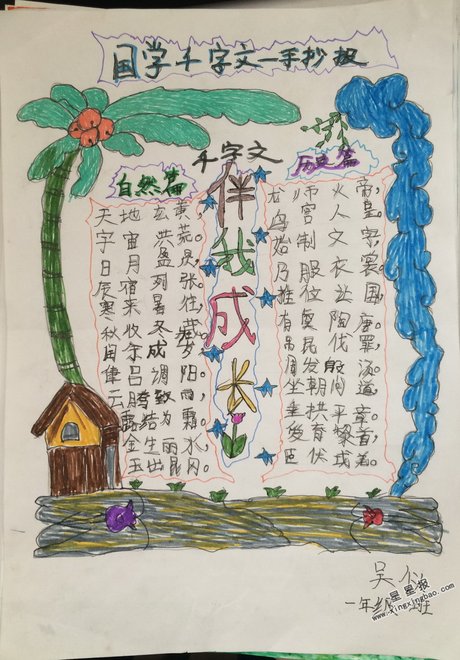 国学千字文一手抄报
千字文
伴我成长
自然篇
天地玄黄。
宇宙洪荒。
日月盈昃。
辰宿列张。
寒来暑往。
秋收冬藏。
闰余成岁。
律吕调阳。
云腾致雨。
露结为霜。
金生丽水。
玉出昆冈。
历史篇
龙师火帝。
鸟官人皇。
始制文字。
乃服衣裳。
推位让国。
有虞陶唐。
吊民伐罪。
周发殷汤。
坐朝问道。
垂拱平章。
爱育黎首。
臣伏戎羌。
吴
一年级 班
星星报
www.xingxingbao.com